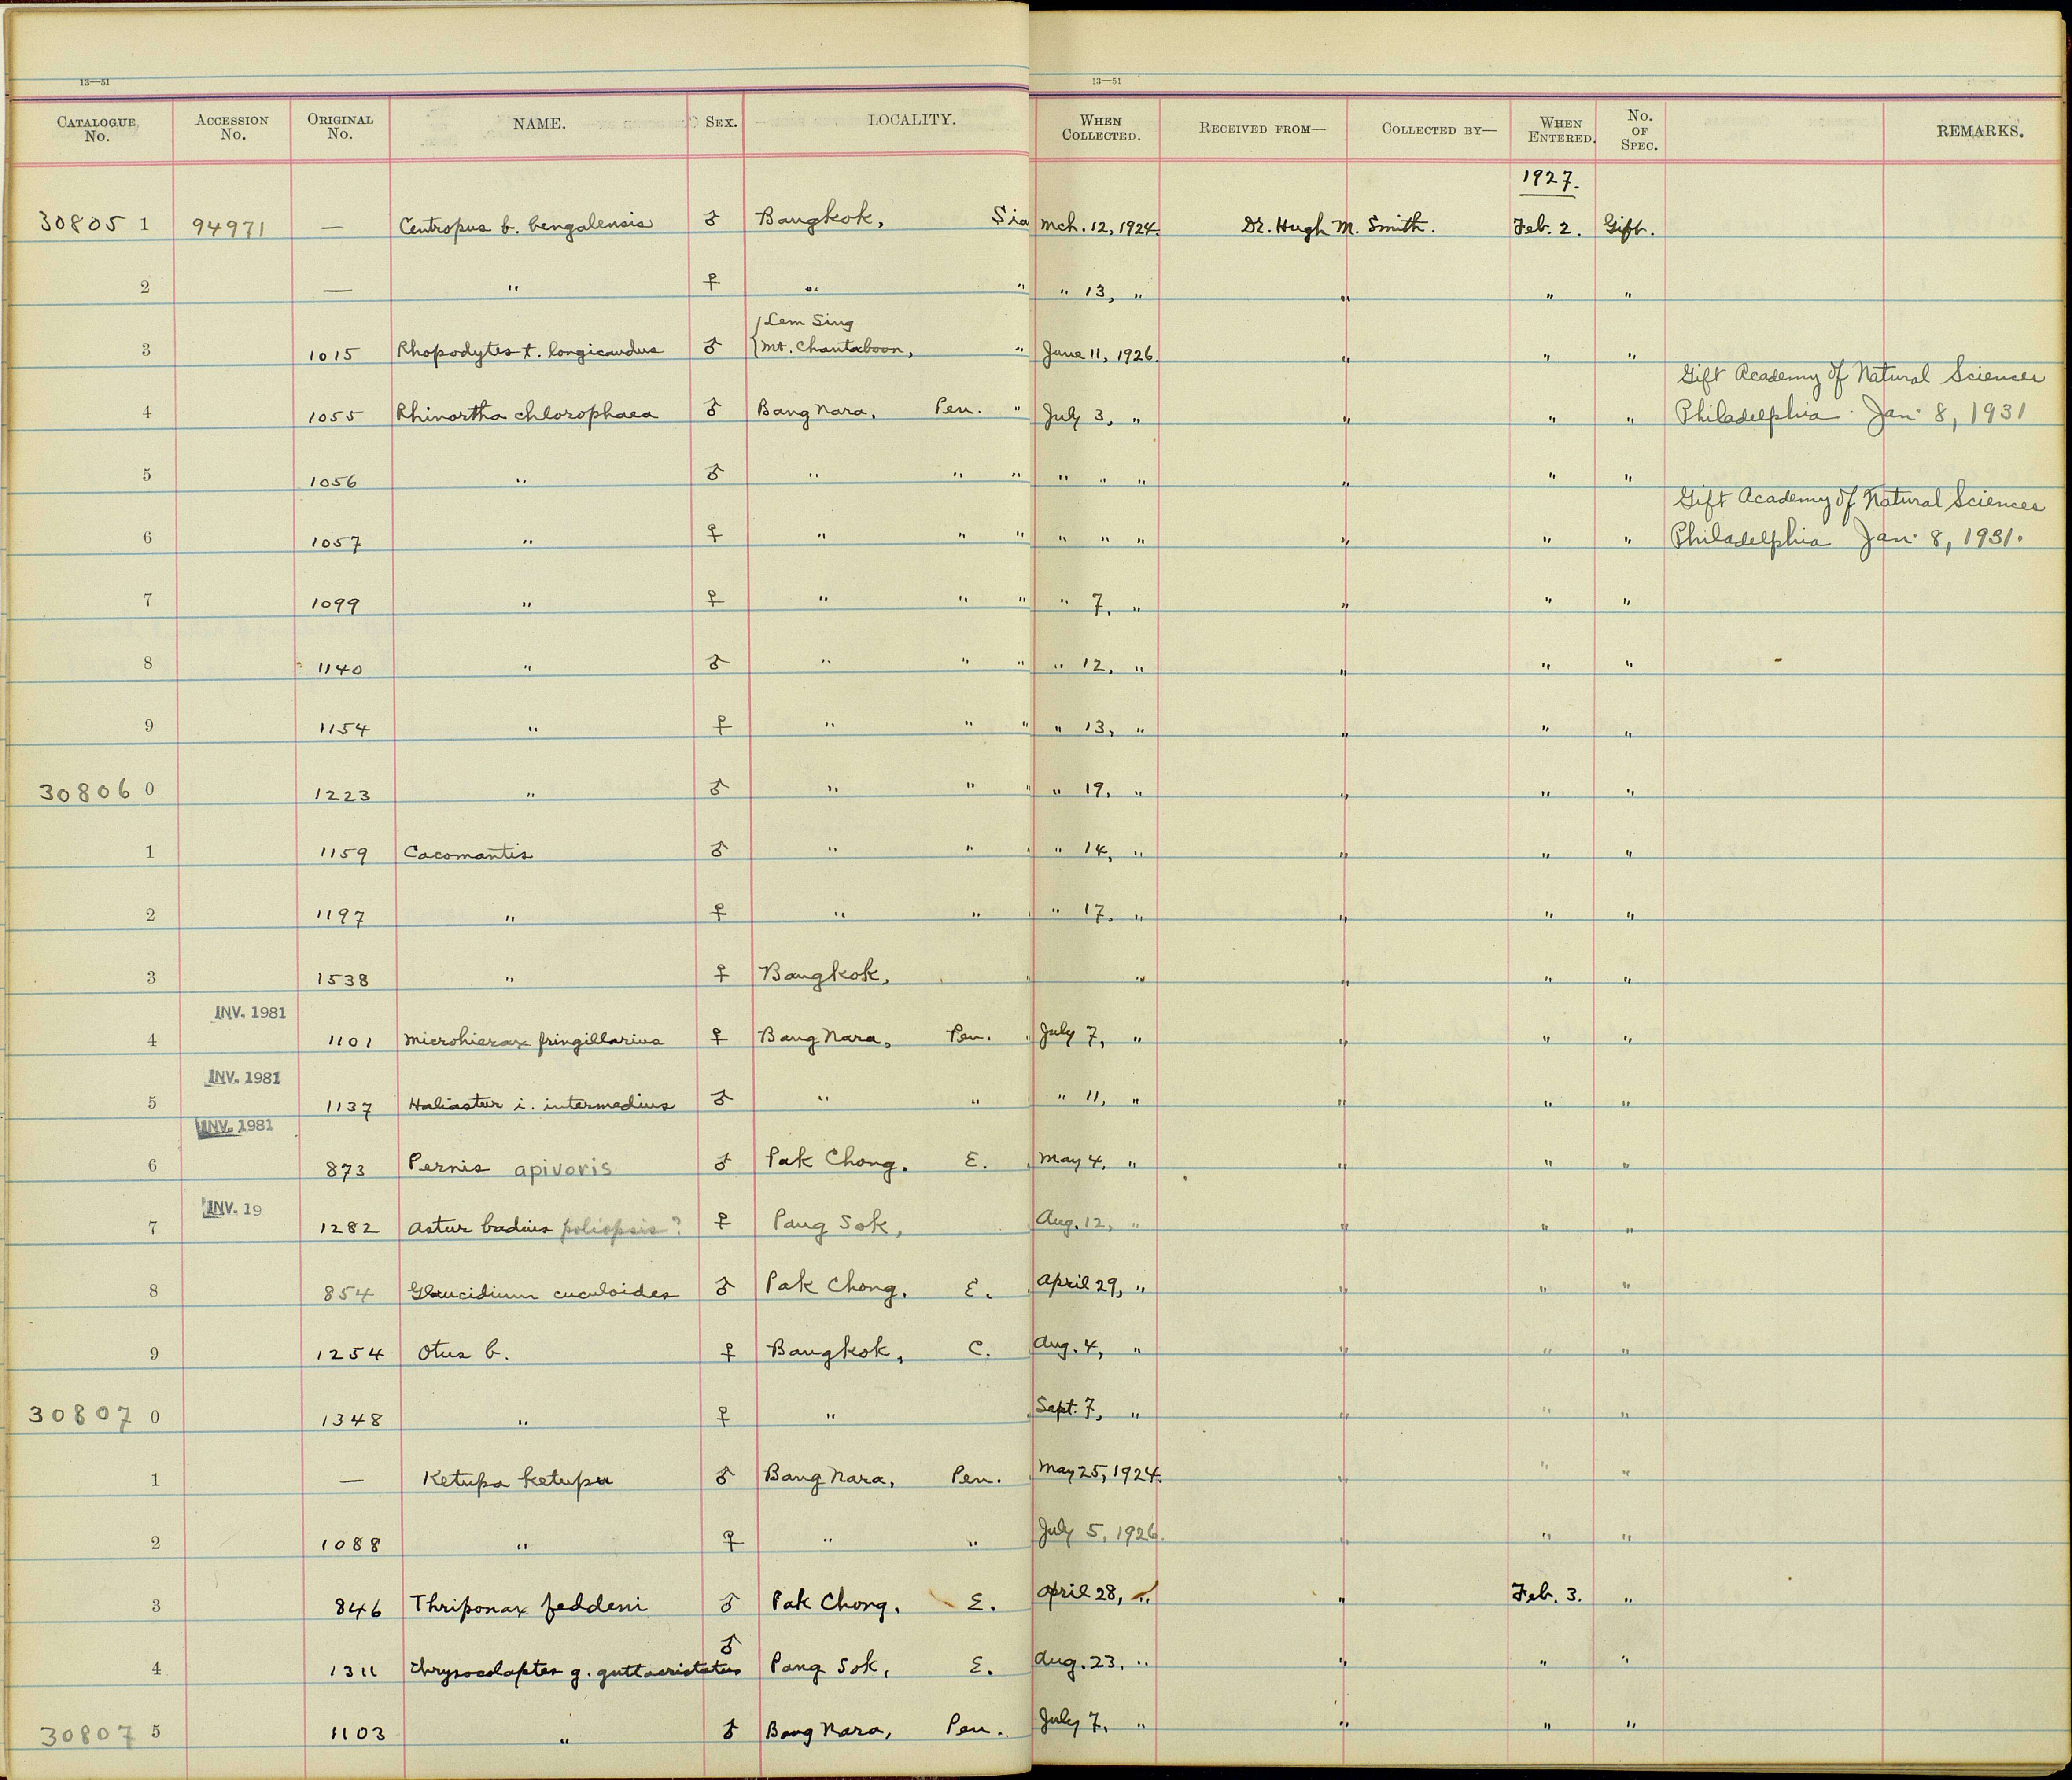 13—51 13—51
CATALOGUE No. ACCESSION No. ORIGINAL No. NAME. SEX. LOCALITY. WHEN COLLECTED. RECEIVED FROM— COLLECTED BY— WHEN ENTERED. No. OF SPEC. REMARKS.
1927.
30805 1 94971 — Centropus b. bengalensis ♂ Bangkok, Sia Mch. 12, 1924. Dr. Hugh M. Smith. Feb. 2. Gift.
2 — " ♀ " " " 13, " " " "
{Lem Sing
3 1015 Rhopodytes t. longicaudus ♂ {Mt. Chantaboon, " June 11, 1926. " " "
Gift Academy of Natural Sciences
4 1055 Rhinortha chlorophaea ♂ Bang Nara, Pen. " July 3, " " " " Philadelphia. Jan. 8, 1931
5 1056 " ♂ " " " " " " " " "
Gift Academy of Natural Sciences
6 1057 " ♀ " " " " " " " " " Philadelphia Jan. 8, 1931.
7 1099 " ♀ " " " " 7, " " " "
8 1140 " ♂ " " " " 12, " " " "
9 1154 " ♀ " " " " 13, " " " "
30806 0 1223 " ♂ " " " " 19, " " " "
1 1159 Cacomantis ♂ " " " " 14, " " " "
2 1197 " ♀ " " " " 17, " " " "
3 1538 " ♀ Bangkok, " " " " "
INV. 1981
4 1101 Microhierax fringillarius ♀ Bang Nara, Pen. " July 7, " " " "
INV. 1981
5 1137 Haliastur i. intermedius ♂ " " " 11, " " " "
INV. 1981
6 873 Pernis apivoris ♂ Pak Chong. E. " May 4, " " " "
INV. 19
7 1282 Astur badius poliopsis? ♀ Pang Sok, Aug. 12, " " " "
8 854 Glaucidium cuculoides ♂ Pak Chong. E. " April 29, " " " "
9 1254 Otus b. ♀ Bangkok, C. Aug. 4, " " " "
30807 0 1348 " ♀ " " Sept. 7, " " " "
1 — Ketupa ketupu ♂ Bang Nara, Pen. May 25, 1924. " " "
2 1088 " ♀ " " July 5, 1926. " " "
3 846 Thriponax feddeni ♂ Pak Chong, E. April 28, " " Feb. 3. "
♂
4 1311 Chrysocolaptes g. guttacristatus Pang Sok, E. Aug. 23, " " " "
30807 5 1103 " ♂ Bang Nara, Pen. July 7, " " " "